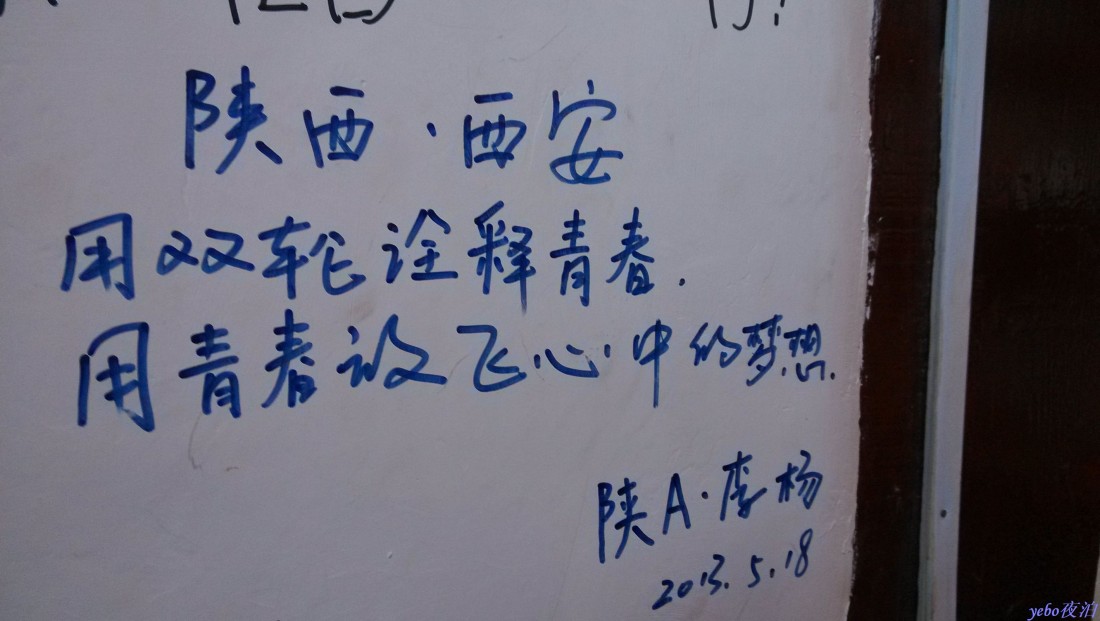 陕西·西安
用双轮诠释青春.
用青春放飞心中的梦想.
陕A·李杨
2013.5.18
yebo夜泊